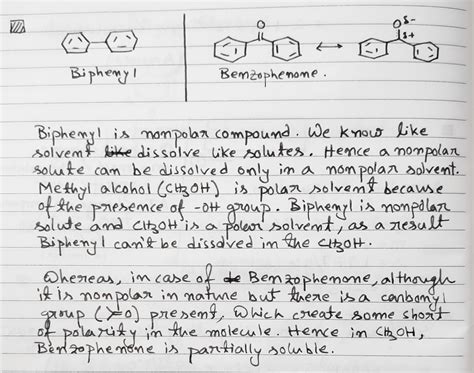 O O δ-
δ+
Biphenyl Benzophenone.
Biphenyl is nonpolar compound. We know like
solvent like dissolve like solutes. Hence a nonpolar
solute can be dissolved only in a nonpolar solvent.
Methyl alcohol (CH3OH) is polar solvent because
of the presence of -OH group. Biphenyl is nonpolar
solute and CH3OH is a polar solvent, as a result
Biphenyl can't be dissolved in the CH3OH.
Whereas, in case of Benzophenone, although
it is nonpolar in nature but there is a carbonyl
group (>=O) present, which create some short
of polarity in the molecule. Hence in CH3OH,
Benzophenone is partially soluble.